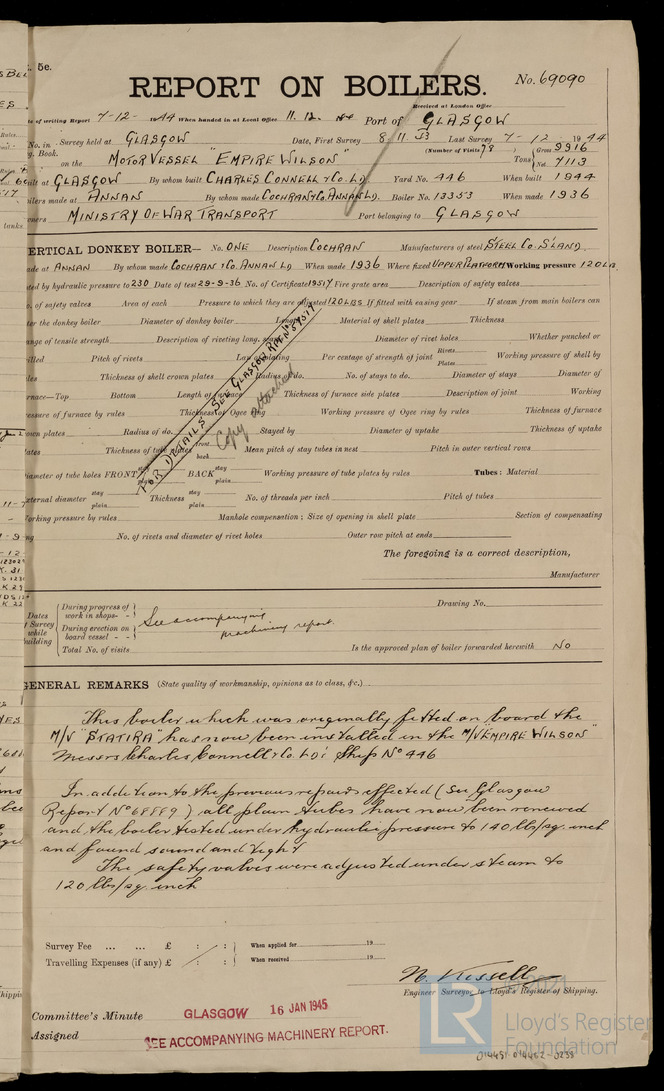 5e.
REPORT ON BOILERS.
No. 69090
Received at London Office
of writing Report 7-12- 1944 When handed in at Local Office 11.12. 44 Port of GLASGOW
No. in Survey held at GLASGOW Date, First Survey 8 11 53 Last Survey 7-12 1944
g. Book. (Number of Visits 78)
on the MOTOR VESSEL "EMPIRE WILSON" Tons Gross 9916 Net 7113
uilt at GLASGOW By whom built CHARLES CONNELL & CO. LD. Yard No. 446 When built 1944
oilers made at ANNAN By whom made COCHRAN & CO. ANNAN LD. Boiler No. 13353 When made 1936
wners MINISTRY OF WAR TRANSPORT Port belonging to GLASGOW
ERTICAL DONKEY BOILER— No. ONE Description COCHRAN Manufacturers of steel STEEL CO. SLAND
ade at ANNAN By whom made COCHRAN & CO. ANNAN LD When made 1936 Where fixed UPPER PLATFORM Working pressure 120 LB
ted by hydraulic pressure to 230 Date of test 29-9-36 No. of Certificate 19517 Fire grate area Description of safety valves
o. of safety valves Area of each Pressure to which they are adjusted 120 LBS If fitted with easing gear If steam from main boilers can
ter the donkey boiler Diameter of donkey boiler Length Material of shell plates Thickness
ange of tensile strength Description of riveting long. seams Diameter of rivet holes Whether punched or
illed Pitch of rivets Lap of plating Per centage of strength of joint Rivets Plates Working pressure of shell by
les Thickness of shell crown plates Radius of do. No. of stays to do. Diameter of stays Diameter of
rnace—Top Bottom Length of furnace Thickness of furnace side plates Description of joint Working
essure of furnace by rules Thickness of Ogee ring Working pressure of Ogee ring by rules Thickness of furnace
own plates Radius of do. Stayed by Diameter of uptake Thickness of uptake
ates Thickness of tube plates front back Mean pitch of stay tubes in nest Pitch in outer vertical rows
iameter of tube holes FRONT stay plain BACK stay plain Working pressure of tube plates by rules Tubes: Material
xternal diameter stay plain Thickness stay plain No. of threads per inch Pitch of tubes
orking pressure by rules Manhole compensation; Size of opening in shell plate Section of compensating
ng No. of rivets and diameter of rivet holes Outer row pitch at ends
FOR DETAILS SEE GLASGOW RPT No 57517
Copy attached
The foregoing is a correct description,
Manufacturer
Dates of Survey while building
During progress of work in shops - -
During erection on board vessel - -
Total No. of visits
See accompanying
machinery report.
Drawing No.
Is the approved plan of boiler forwarded herewith No
GENERAL REMARKS (State quality of workmanship, opinions as to class, &c.)
This boiler which was originally fitted on board the
M/V "STATIRA" has now been installed in the M/V "EMPIRE WILSON"
Messrs Charles Connell & Co. LD's Ship No 446
In addition to the previous repairs effected (See Glasgow
Report No 68889) all plain tubes have now been renewed
and the boiler tested under hydraulic pressure to 140 lbs/sq. inch
and found sound and tight
The safety valves were adjusted under steam to
120 lbs/sq. inch
Survey Fee ... ... £ : : When applied for 19
Travelling Expenses (if any) £ : : When received 19
N. Kissell
Engineer Surveyor to Lloyd's Register of Shipping.
Committee's Minute GLASGOW 16 JAN 1945
Assigned SEE ACCOMPANYING MACHINERY REPORT.
LR
Lloyd's Register
Foundation
014451-014462-0238